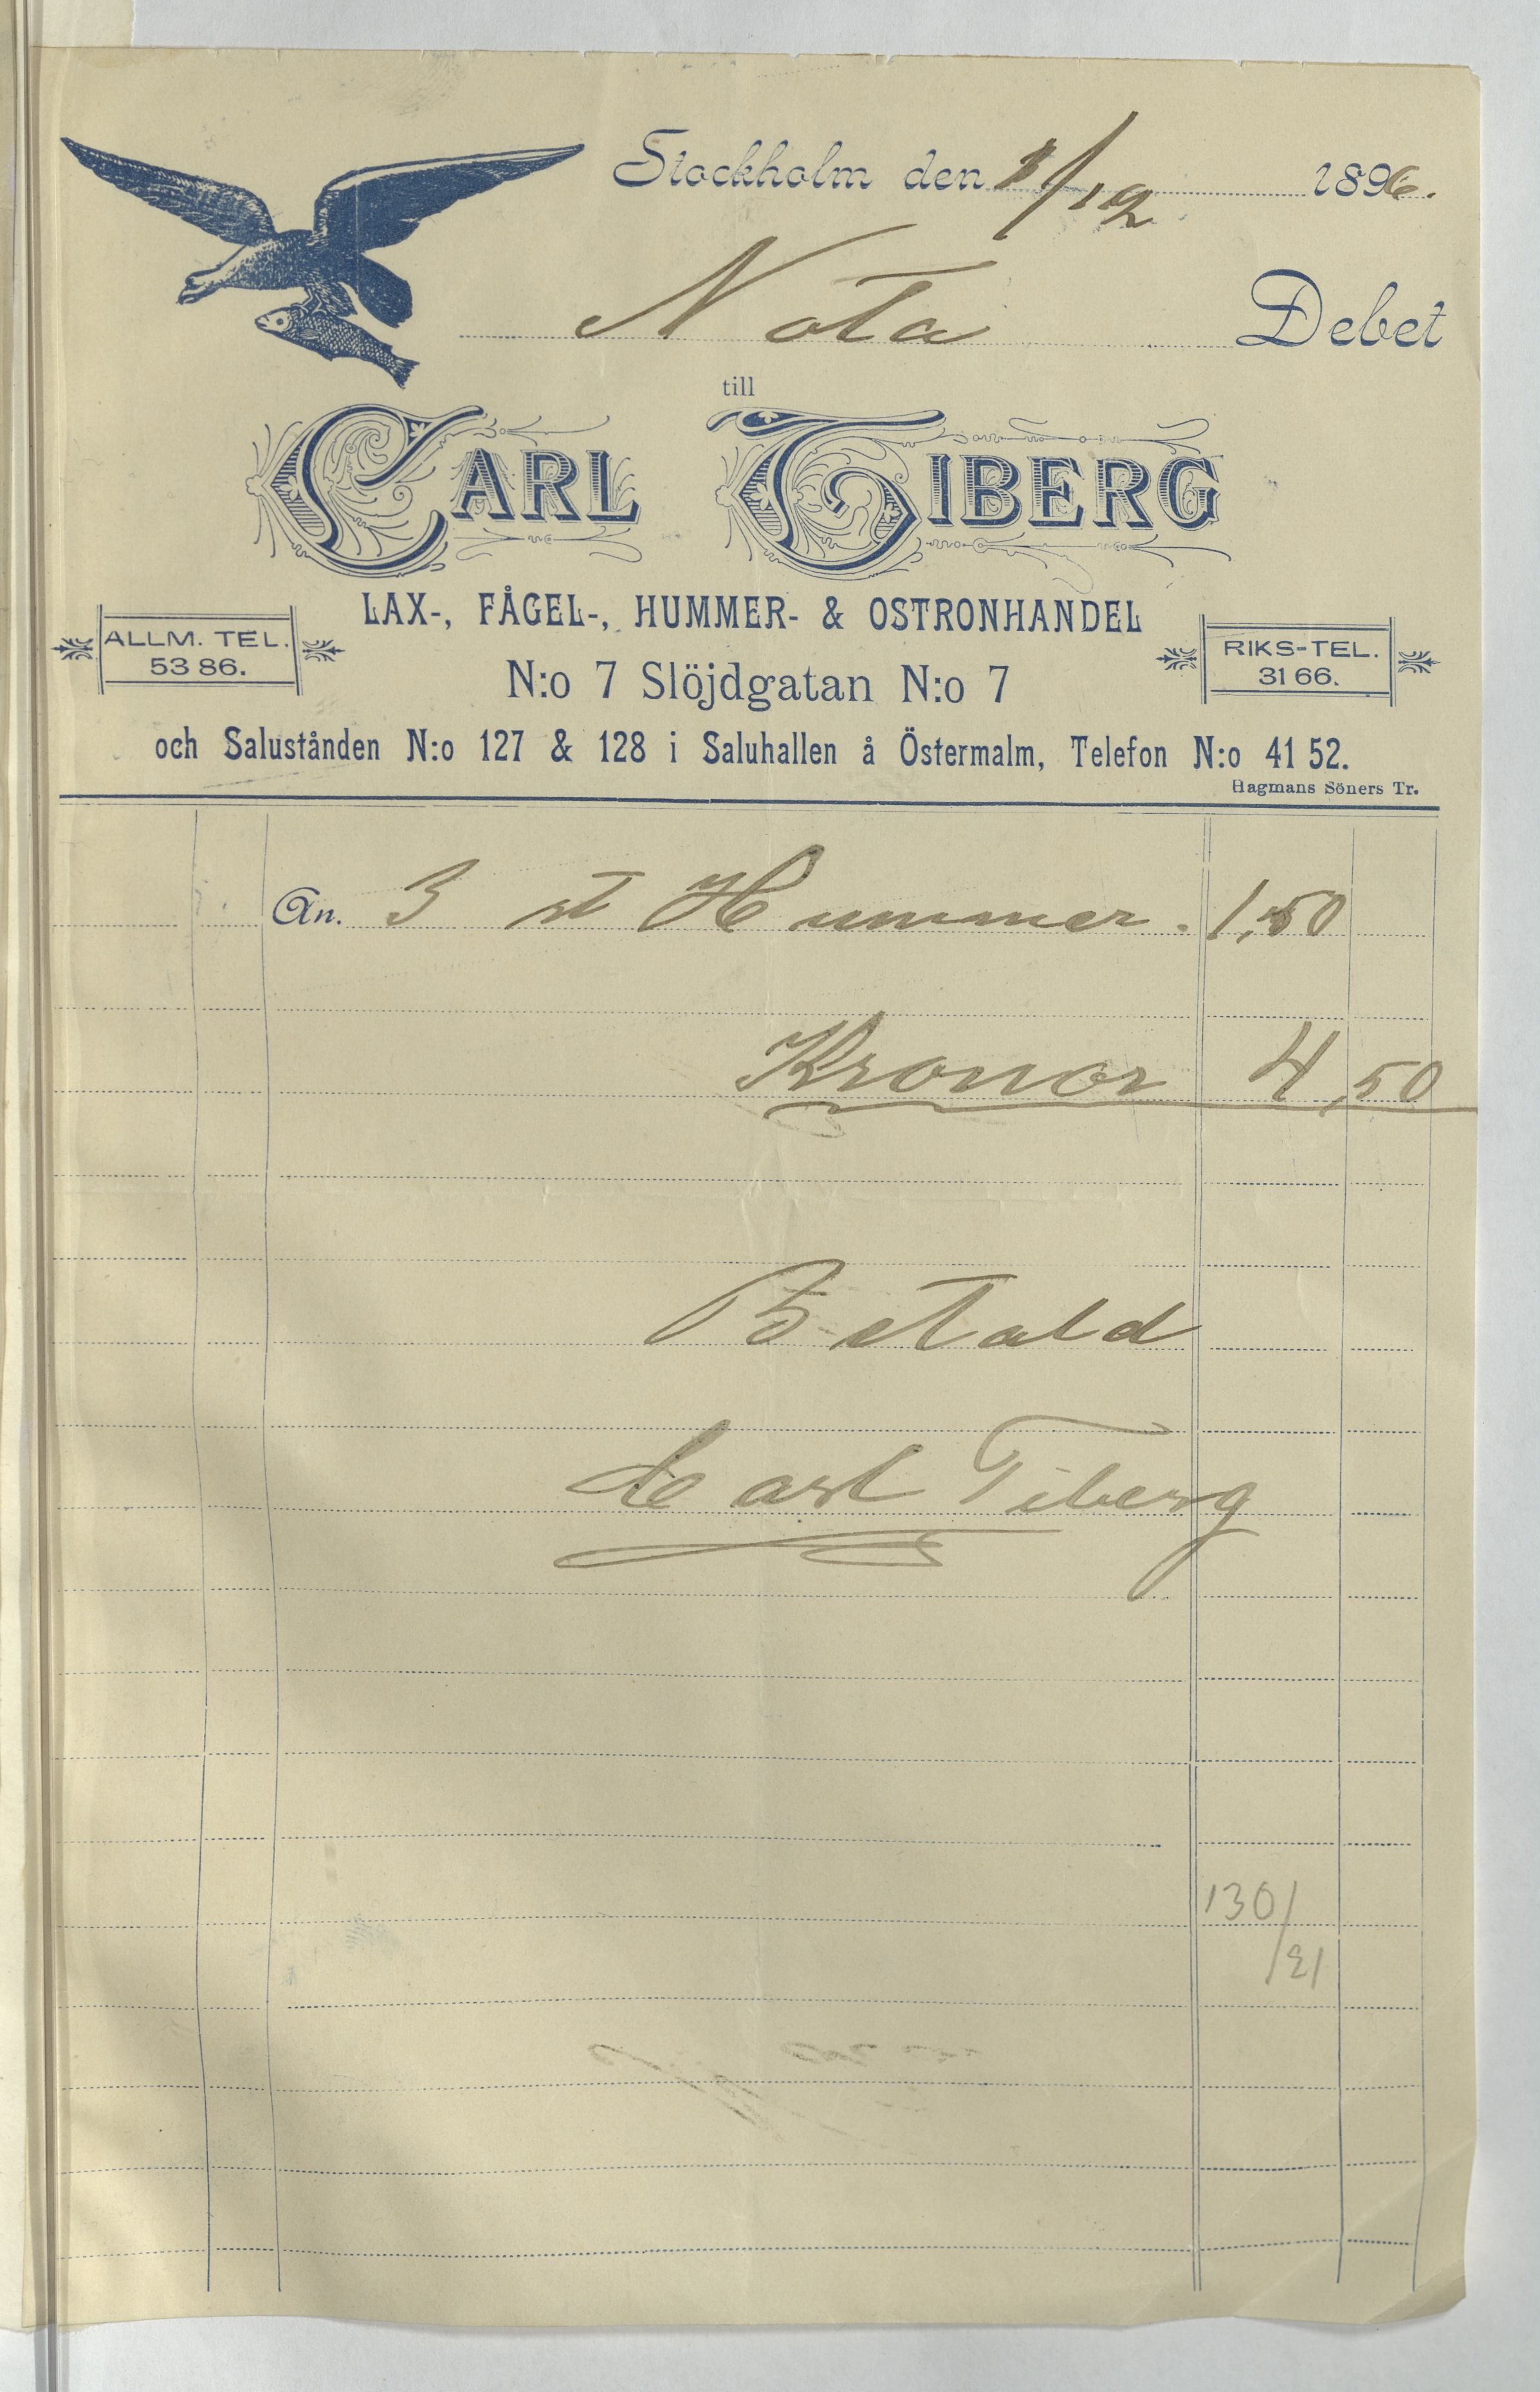 Stockholm den 8/12 1896.
Nota Debet
till
CARL TIBERG
LAX-, FÅGEL-, HUMMER- & OSTRONHANDEL
ALLM. TEL. 53 86.
N:o 7 Slöjdgatan N:o 7
RIKS-TEL. 31 66.
och Salustånden N:o 127 & 128 i Saluhallen å Östermalm, Telefon N:o 41 52.
Hagmans Söners Tr.
An. 3 st Hummer. 1,50
Kronor 4,50
Betald
Carl Tiberg
130/